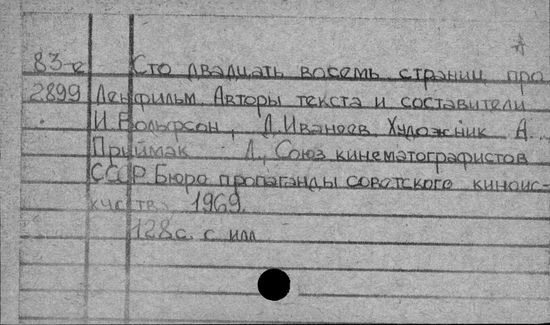 А
83-е Сто двадцать восемь страниц про
2899 Ленфильм. Авторы текста и составители
И. Вольфсон, Д. Иванеев. Художник А.
Приймак Л., Союз кинематографистов
СССР. Бюро пропаганды советского киноис-
кусства 1969.
128с. с илл